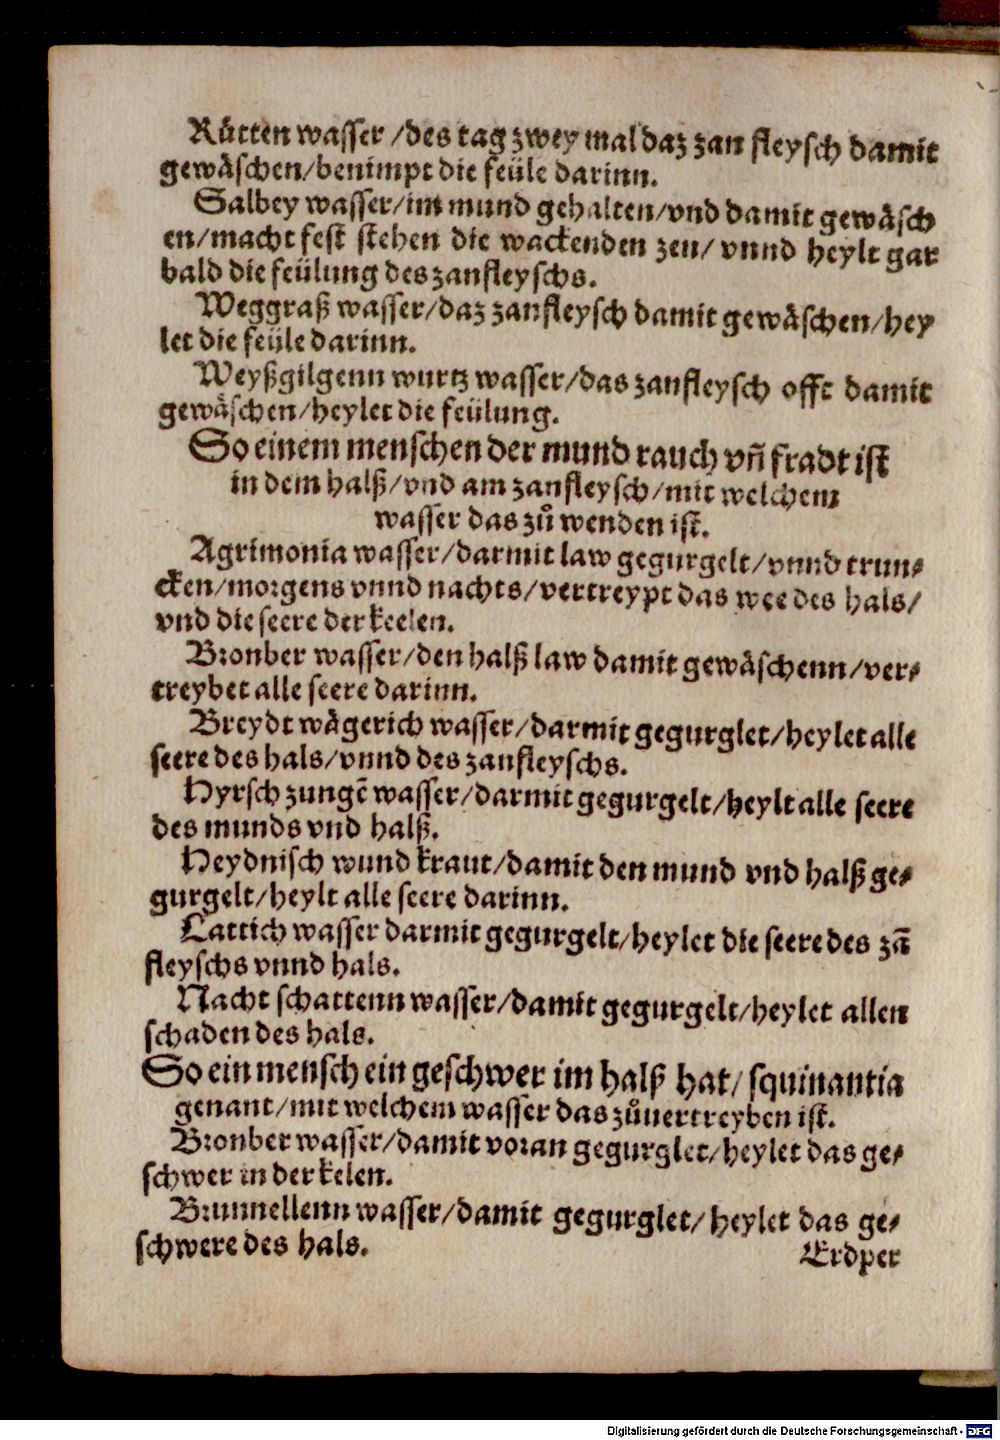 Rütten wasser /des tag zwey mal daz zan fleysch damit
gewäschen/benimpt die feüle darinn.
Salbey wasser/im mund gehalten/vnd damit gewäsch
en/macht fest stehen die wackenden zen/ vnnd heylt gar
bald die feülung des zanfleyschs.
Weggraß wasser/daz zanfleysch damit gewäschen/hey
let die feüle darinn.
Weyßgilgenn wurtz wasser/das zanfleysch offt damit
gewäschen/heylet die feülung.
So einem menschen der mund rauch vñ fradt ist
in dem halß/vnd am zanfleysch/mit welchem
wasser das zů wenden ist.
Agrimonia wasser/darmit law gegurgelt/vnnd trun⸗
cken/morgens vnnd nachts/vertreypt das wee des hals/
vnd die seere der keelen.
Bronber wasser/den halß law damit gewäschenn/ver⸗
treybet alle seere darinn.
Breydt wägerich wasser/darmit gegurglet/heylet alle
seere des hals/vnnd des zanfleyschs.
Hyrsch zungẽ wasser/darmit gegurgelt/heylt alle seere
des munds vnd halß.
Heydnisch wund kraut/damit den mund vnd halß ge⸗
gurgelt/heylt alle seere darinn.
Lattich wasser darmit gegurgelt/heylet die seere des zã
fleyschs vnnd hals.
Nacht schattenn wasser/damit gegurgelt/heylet allen
schaden des hals.
So ein mensch ein geschwer im halß hat/ squinantia
genant/mit welchem wasser das zůuertreyben ist.
Bronber wasser/damit voran gegurglet/heylet das ge⸗
schwer in der kelen.
Brunnellenn wasser/damit gegurglet/ heylet das ge⸗
schwere des hals.
Erdper
Digitalisierung gefördert durch die Deutsche Forschungsgemeinschaft - DFG